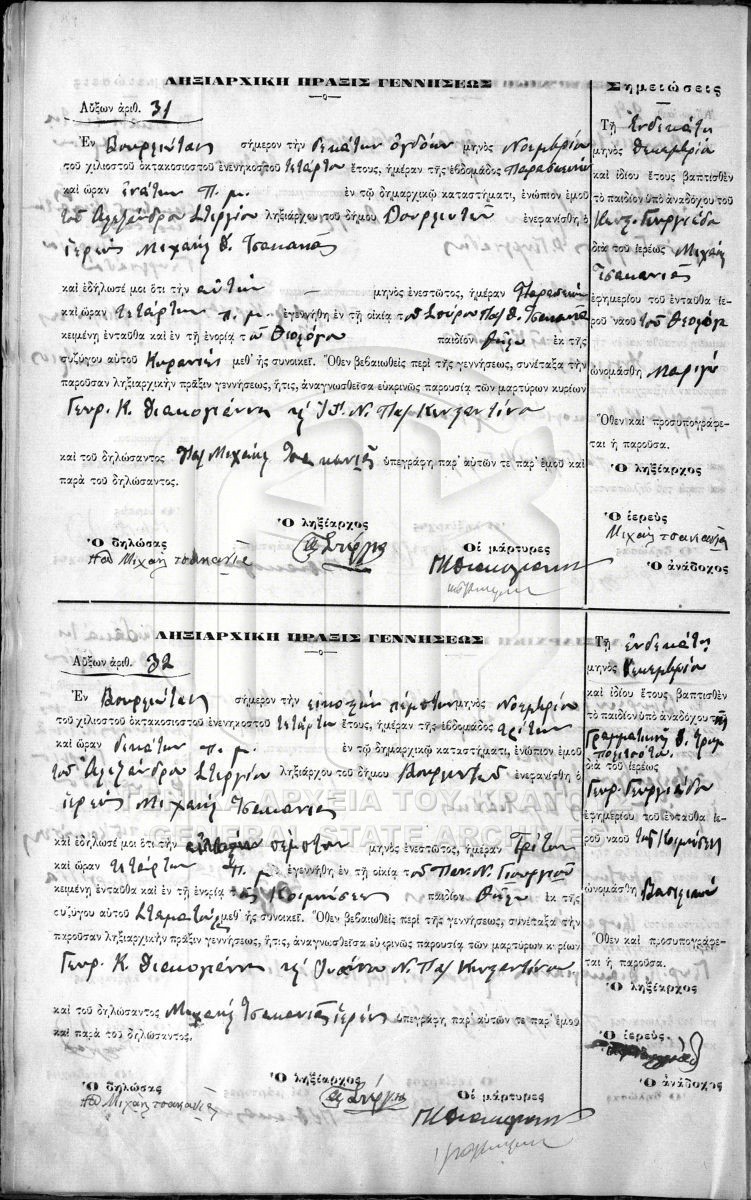 ΛΗΞΙΑΡΧΙΚΗ ΠΡΑΞΙΣ ΓΕΝΝΗΣΕΩΣ
Αὔξων ἀριθ. 31
Ἐν Βουρλιώταις σήμερον τὴν δεκάτην ὀγδόην μηνὸς Νοεμβρίου
τοῦ χιλιοστοῦ ὀκτακοσιοστοῦ ἐνενηκοστοῦ τετάρτου ἔτους, ἡμέραν τῆς ἑβδομάδος Παρασκευὴν
καὶ ὥραν ἐνάτην π. μ. ἐν τῷ δημαρχικῷ καταστήματι, ἐνώπιον ἐμοῦ
τοῦ Ἀλεξάνδρου Στεργίου ληξιάρχου τοῦ δήμου ἐνεφανίσθη ὁ
ἱερεὺς Μιχαὴλ
καὶ ἐδήλωσέ μοι ὅτι τὴν αὐτὴν μηνὸς ἐνεστῶτος, ἡμέραν Παρασκευὴν
καὶ ὥραν τετάρτην π. μ. ἐγεννήθη ἐν τῇ οἰκίᾳ τοῦ
κειμένῃ ἐνταῦθα καὶ ἐν τῇ ἐνορίᾳ τοῦ Θεολόγου παιδίον θῆλυ ἐκ τῆς
συζύγου αὐτοῦ μεθ' ἧς συνοικεῖ. Ὅθεν βεβαιωθεὶς περὶ τῆς γεννήσεως, συνέταξα τὴν
παροῦσαν ληξιαρχικὴν πρᾶξιν γεννήσεως, ἥτις, ἀναγνωσθεῖσα εὐκρινῶς παρουσίᾳ τῶν μαρτύρων κυρίων
Γεωρ. Κ. Διακογιάννη κ Ἰω. Ν. Παπ Κωνσταντίνου
καὶ τοῦ δηλώσαντος Παπ Μιχαὴλ ὑπεγράφη παρ' αὐτῶν τε παρ' ἐμοῦ καὶ
παρὰ τοῦ δηλώσαντος.
Ὁ δηλώσας
Ὁ ληξίαρχος
Οἱ μάρτυρες
Σημειώσεις
Τῇ ἑνδεκάτῃ
μηνὸς Δεκεμβρίου
καὶ ἰδίου ἔτους βαπτισθὲν
τὸ παιδίον ὑπὸ ἀναδόχου τοῦ
Κωνσ. Γεωργιάδου
διὰ τοῦ ἱερέως Μιχαὴλ
ἐφημερίου τοῦ ἐνταῦθα ἱε-
ροῦ ναοῦ τοῦ Θεολόγου
ὠνομάσθη Μαριγώ
Ὅθεν καὶ προσυπογράφε-
ται ἡ παροῦσα.
Ὁ ληξίαρχος
Ὁ ἱερεὺς
Ὁ ἀνάδοχος
ΛΗΞΙΑΡΧΙΚΗ ΠΡΑΞΙΣ ΓΕΝΝΗΣΕΩΣ
Αὔξων ἀριθ. 32
Ἐν Βουρλιώταις σήμερον τὴν εἰκοστὴν πέμπτην μηνὸς Νοεμβρίου
τοῦ χιλιοστοῦ ὀκτακοσιοστοῦ ἐνενηκοστοῦ τετάρτου ἔτους, ἡμέραν τῆς ἑβδομάδος τρίτην
καὶ ὥραν δεκάτην π. μ. ἐν τῷ δημαρχικῷ καταστήματι, ἐνώπιον ἐμοῦ
τοῦ Ἀλεξάνδρου Στεργίου ληξιάρχου τοῦ δήμου ἐνεφανίσθη ὁ
ἱερεὺς Μιχαὴλ
ΓΕΝΙΚΑ ΑΡΧΕΙΑ ΤΟΥ ΚΡΑΤΟΥΣ
GENERAL STATE ARCHIVES
καὶ ἐδήλωσέ μοι ὅτι τὴν πέμπτην μηνὸς ἐνεστῶτος, ἡμέραν Τρίτην
καὶ ὥραν τετάρτην π. μ. ἐγεννήθη ἐν τῇ οἰκίᾳ τοῦ
κειμένῃ ἐνταῦθα καὶ ἐν τῇ ἐνορίᾳ τῆς Κοιμήσεως παιδίον θῆλυ ἐκ τῆς
συζύγου αὐτοῦ μεθ' ἧς συνοικεῖ. Ὅθεν βεβαιωθεὶς περὶ τῆς γεννήσεως, συνέταξα τὴν
παροῦσαν ληξιαρχικὴν πρᾶξιν γεννήσεως, ἥτις, ἀναγνωσθεῖσα εὐκρινῶς παρουσίᾳ τῶν μαρτύρων κυρίων
Γεωρ. Κ. Διακογιάννη κ Ἰωάννου Ν. Παπ Κωνσταντίνου
καὶ τοῦ δηλώσαντος Μιχαὴλ ἱερέως ὑπεγράφη παρ' αὐτῶν τε παρ' ἐμοῦ
καὶ παρὰ τοῦ δηλώσαντος.
Ὁ δηλώσας
Ὁ ληξίαρχος
Οἱ μάρτυρες
Τῇ ἑνδεκάτῃ
μηνὸς Δεκεμβρίου
καὶ ἰδίου ἔτους βαπτισθὲν
τὸ παιδίον ὑπὸ ἀναδόχου τῆς
Γραμματικῆς
διὰ τοῦ ἱερέως
Γεωρ. Γεωργιάδου
ἐφημερίου τοῦ ἐνταῦθα ἱε-
ροῦ ναοῦ τῆς Κοιμήσεως
ὠνομάσθη Βασιλικὴ
Ὅθεν καὶ προσυπογράφε-
ται ἡ παροῦσα.
Ὁ ληξίαρχος
Ὁ ἱερεὺς
Ὁ ἀνάδοχος